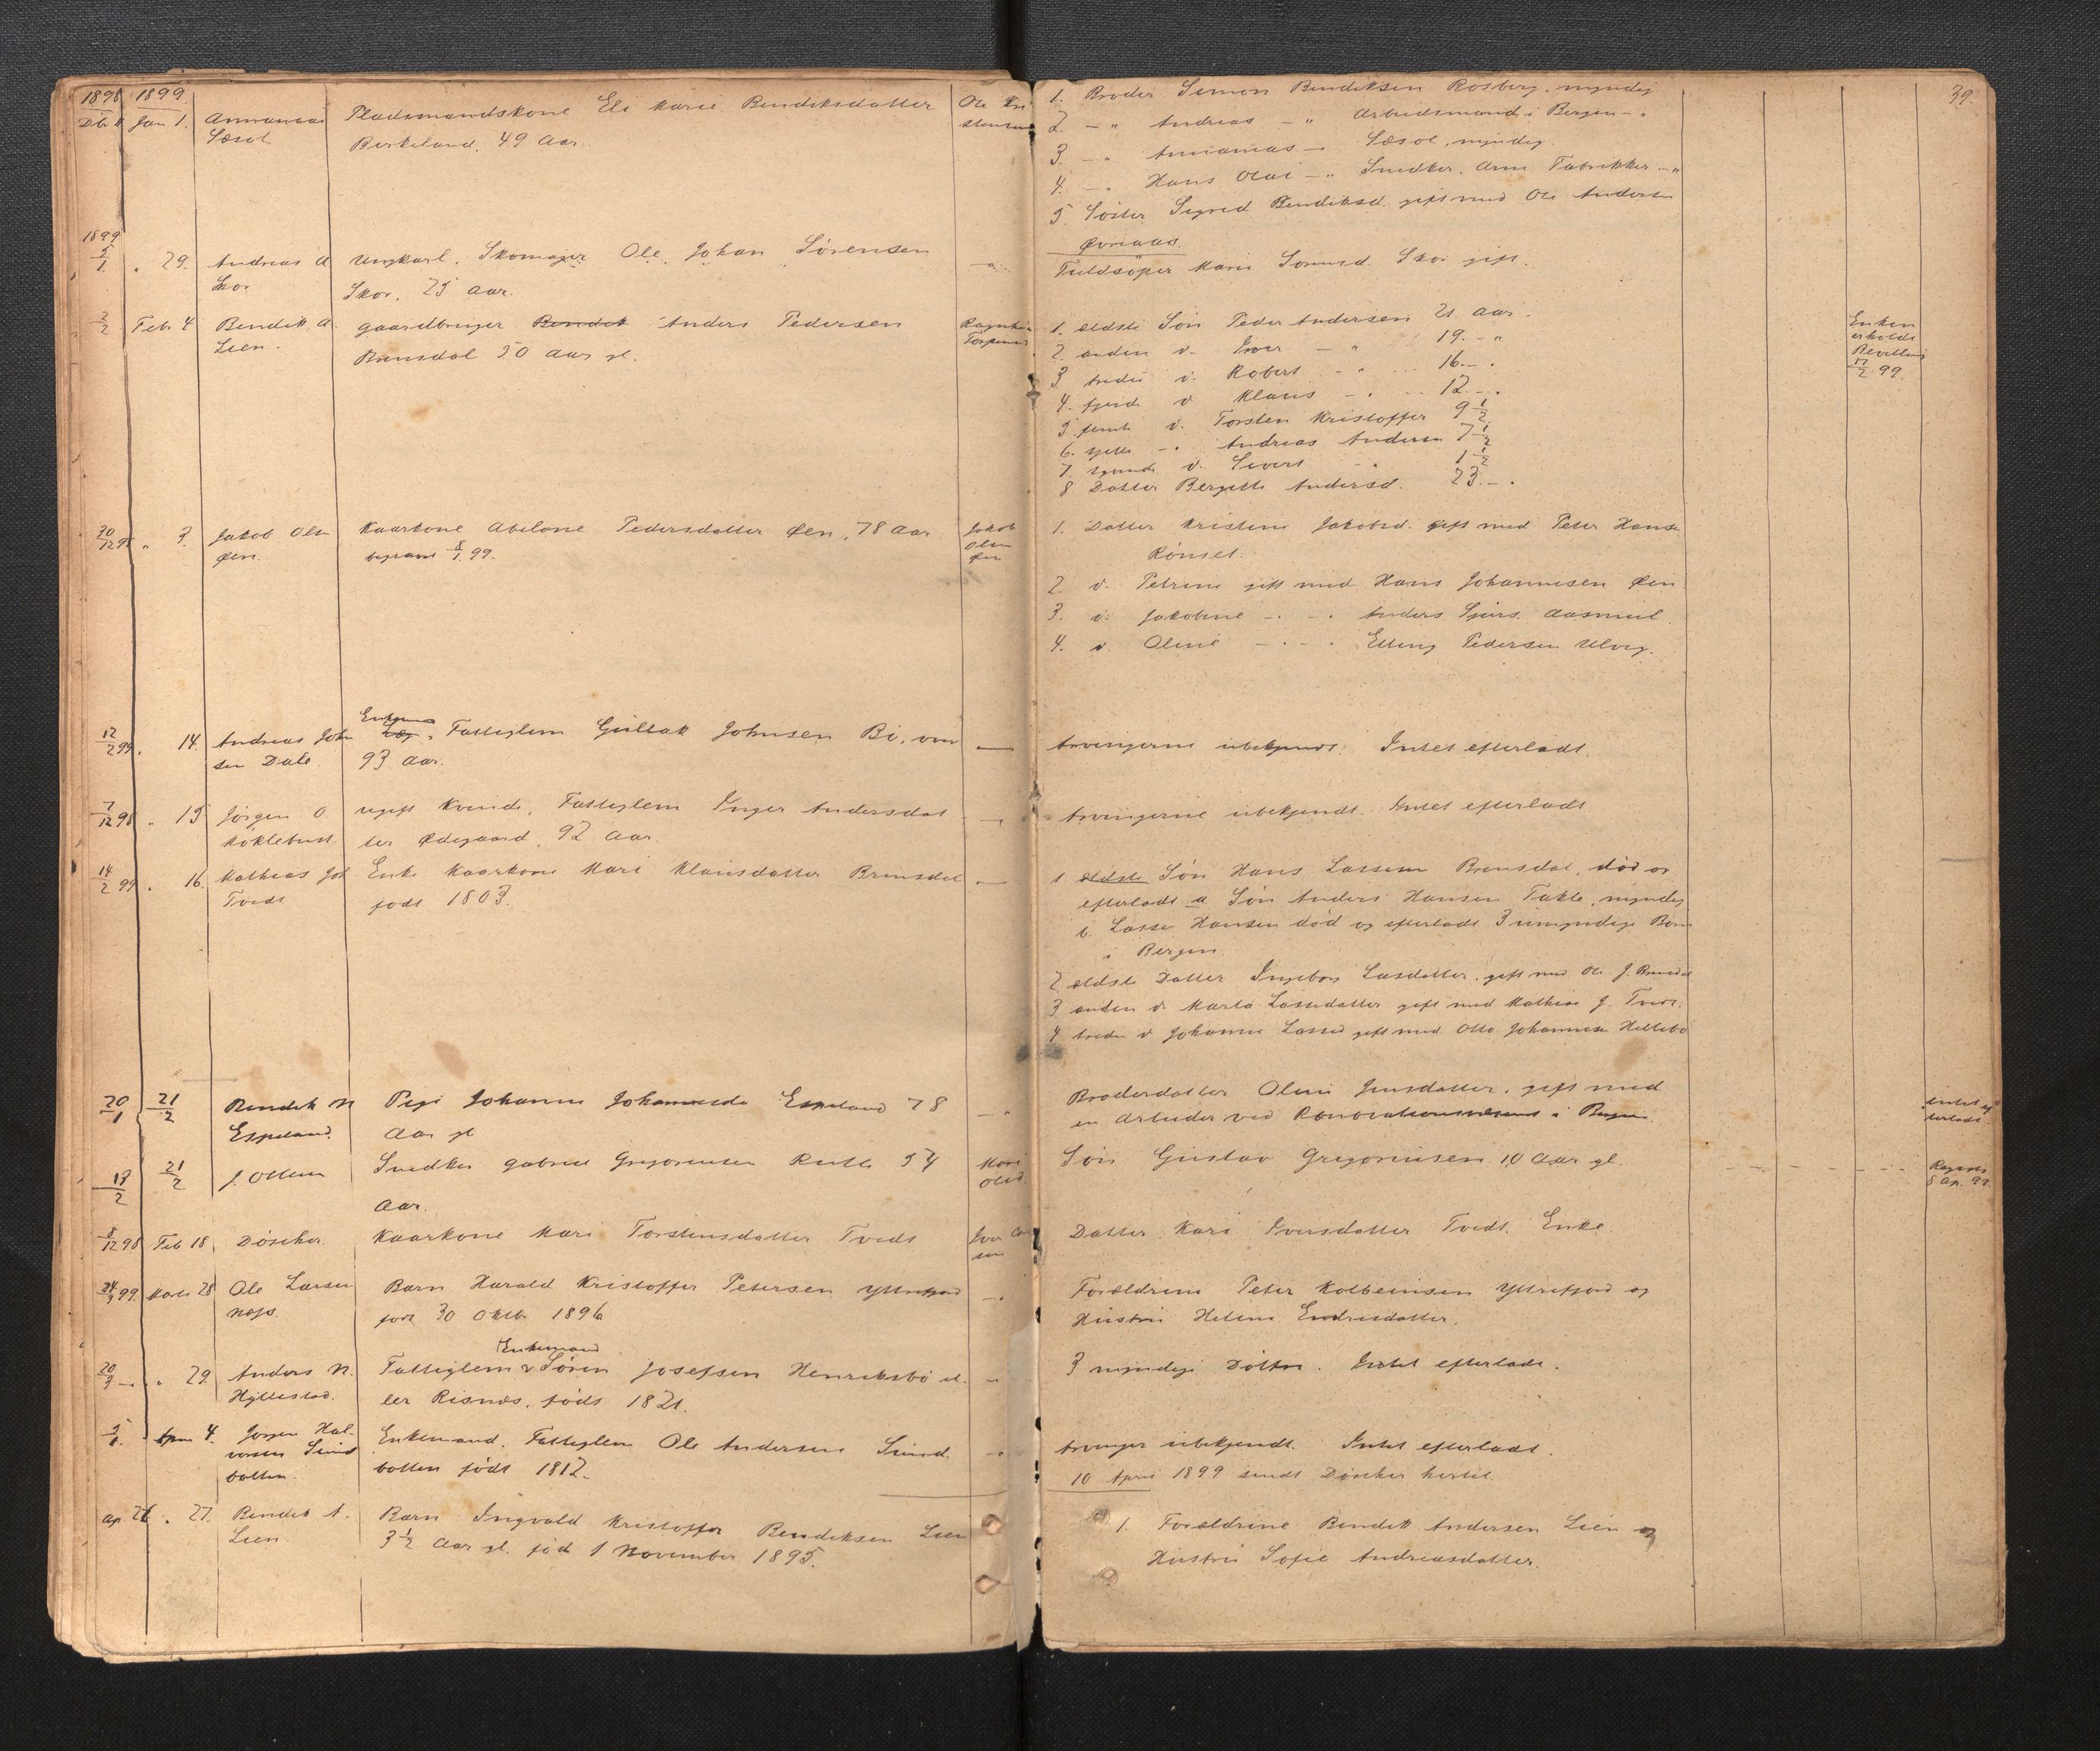 39.
1898 1899.
Jan 1. Ananias Pladsmandskone Eli Marie Bendiksdatter Ole Kri
Sæsol Birkeland. 49 Aar. stensen
1. Broder Simon Bendiksen Rosberg, myndig
2. —" Andreas —" Arbeidsmand i Bergen —"
3. —" Ananias —" Sæsol, myndig.
4. —" Hans Olai —" Snedker, Arne Fabrikker —"
5 Søster Sigrid Bendiksd. gift med Ole Andersen
Øvreaas.
1899
5/1 " 29. Andreas A Ungkarl, Skomager Ole Johan Sørensen —"
Skor. 25 Aar.
Fuldsøster Marie Sørensd. Skor gift.
2/2 Febr 4 Bendik A. Gaardbruger Anders Pedersen Ragnhild
Lien. Brensdal 50 Aar gl.
1. ældste Søn Peder Andersen 21 Aar.
2. anden d. Iver —" 19. —"
3 tredie d. Robert —" 16 —"
4. fjerde d Klaus —" 12 —"
5. femte d. Torsten Kristoffer 9 1/2
6. sjette —" Andreas Andersen 7 1/2
7. syvende d. Sivert —" 1 1/2
8 Datter Bergitte Andersd. 23 —"
Enken
erholdt
Bevilling
17/2 99.
30/12 98 " 3. Jakob Olsen Kaarkone Abelone Pedersdatter Øen, 78 Aar. Jakob
Øen. begravet 8/1 99. Olsen
Øen
1. Datter Kristine Jakobsd. gift med Peter Hansen
Rønset.
2. d. Petrine gift med Hans Johannesen Øen
3. d. Jakobine —"—" Anders Sjurs. Aasmul.
4. d Oline —"—" Elling Pedersen Ulvig.
12/2 99. 14. Andreas John Fattiglem Gullak Johnsen Bø, over —
sen Dale 93 Aar.
Arvingerne ubekjendt. Intet efterladt.
7/12 98 " 15 Jørgen O ugift Kvinde, Fattiglem Inger Andersdat —"
Høklebust. ter Ødegaard, 92 Aar
Arvingerne ubekjendt. Intet efterladt.
14/2 99 " 16. Mathias Joh Enke Kaarkone Mari Klausdatter Brensdal —
Tvedt født 1803.
1 ældste Søn Hans Lassesen Brensdal, død og
efterladt a Søn Anders Hansen Takle, myndig
b. Lasse Hansen død og efterladt 3 umyndige Børn
i Bergen.
2 ældste Datter Ingebor Lasdatter, gift med Ole J. Brensdal
3 anden d. Marta Lassedatter gift med Mathias J. Tvedt.
4 tredie d Johanne Lassed gift med Otto Johannesen Hellebø
20/1 21/2 Bendik N Pige Johanne Johannesda Espeland 78 —"
Espeland. Aar gl
Broderdatter Oline Jensdatter, gift med
en Arbeider ved Renovationsvæsenet i Bergen.
Intet ef
terladt.
17/2 21/2 J. Ottesen Snedker Gabriel Gregoriusen Rutle 54 Mari
Aar. Olsd.
Søn Gustav Gregoriusen 10 Aar gl.
8 Ap. 99.
8/12 98 Feb 18. Döscher. Kaarkone Mari Torstensdatter Tvedt
Datter Kari Iversdatter Tvedt. Enke.
24/3 99. Marts 28 Ole Larsen Barn Harald Kristoffer Petersen Yttrefjord —"
født 30 Oktb 1896
Forældrene Peter Kolbeinsen Yttrefjord og
Hustru Helene Endresdatter.
Enkemand
20/3 — " 29. Anders N. Fattiglem Søren Josefsen Henriksbø el —"
Hyllestad. ler Risnæs, født 1821.
3 myndige Døttre. Intet efterladt.
5/1. April 4. Jørgen Hal Enkemand. Fattiglem Ole Andersen Sund —"
vorsen Sund botten født 1812.
botten.
Arvinger ubekjendt. Intet efterladt.
10 April 1899 sendt Döscher hertil.
Ap. 26 " 27. Bendik A. Barn Ingvald Kristoffer Bendiksen Lien
Lien. 3 1/2 Aar gl. født 1 November 1895.
1. Forældrene Bendik Andersen Lien og
Hustru Sofie Andreasdatter.